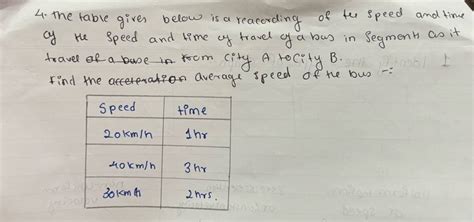 4. The table gives below is a reacording of the speed and time
of the Speed and time of travel of a bus in Segments as it
travel of a buse in from City A to City B.
Find the acceteration average speed of the bus :-
Speed time
20km/h 1hr
40km/h 3hr
30km/h 2hrs.